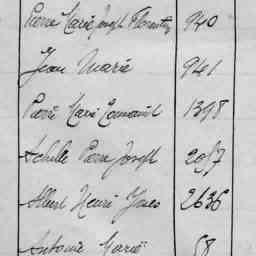 Pierre Marie Joseph Florentin 940
Jean Marie 941
Pierre Marie 1398
Achille Pierre Joseph 2057
Albert Henri Yves 2636
Antoine Marie 58